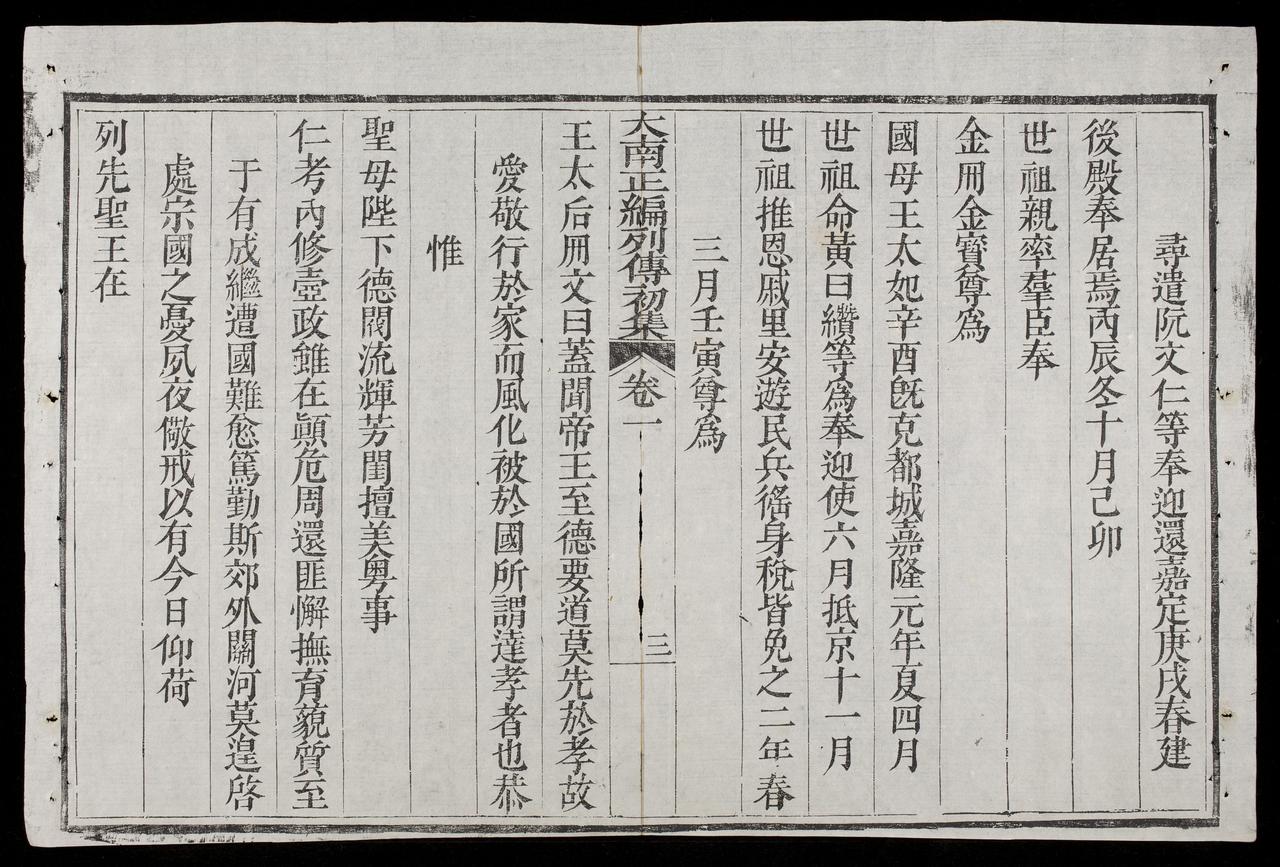 尋遣阮文仁等奉迎還嘉定庚戌春建
後殿奉居焉丙辰冬十月己卯
世祖親率羣臣奉
金冊金寶尊爲
國母王太妃辛酉旣克都城嘉隆元年夏四月
世祖命黃曰纘等爲奉迎使六月抵京十一月
世祖推恩戚里安遊民兵徭身稅皆免之二年春
三月壬寅尊爲
大南正編列傳初集 卷一 三
王太后冊文曰蓋聞帝王至德要道莫先於孝故
愛敬行於家而風化被於國所謂達孝者也恭
惟
聖母陛下德閥流輝芳閨擅美粤事
仁考內修壼政雖在顚危周還匪懈撫育藐質至
于有成繼遭國難愈篤勤斯郊外關河莫遑啓
處宗國之憂夙夜儆戒以有今日仰荷
列先聖王在